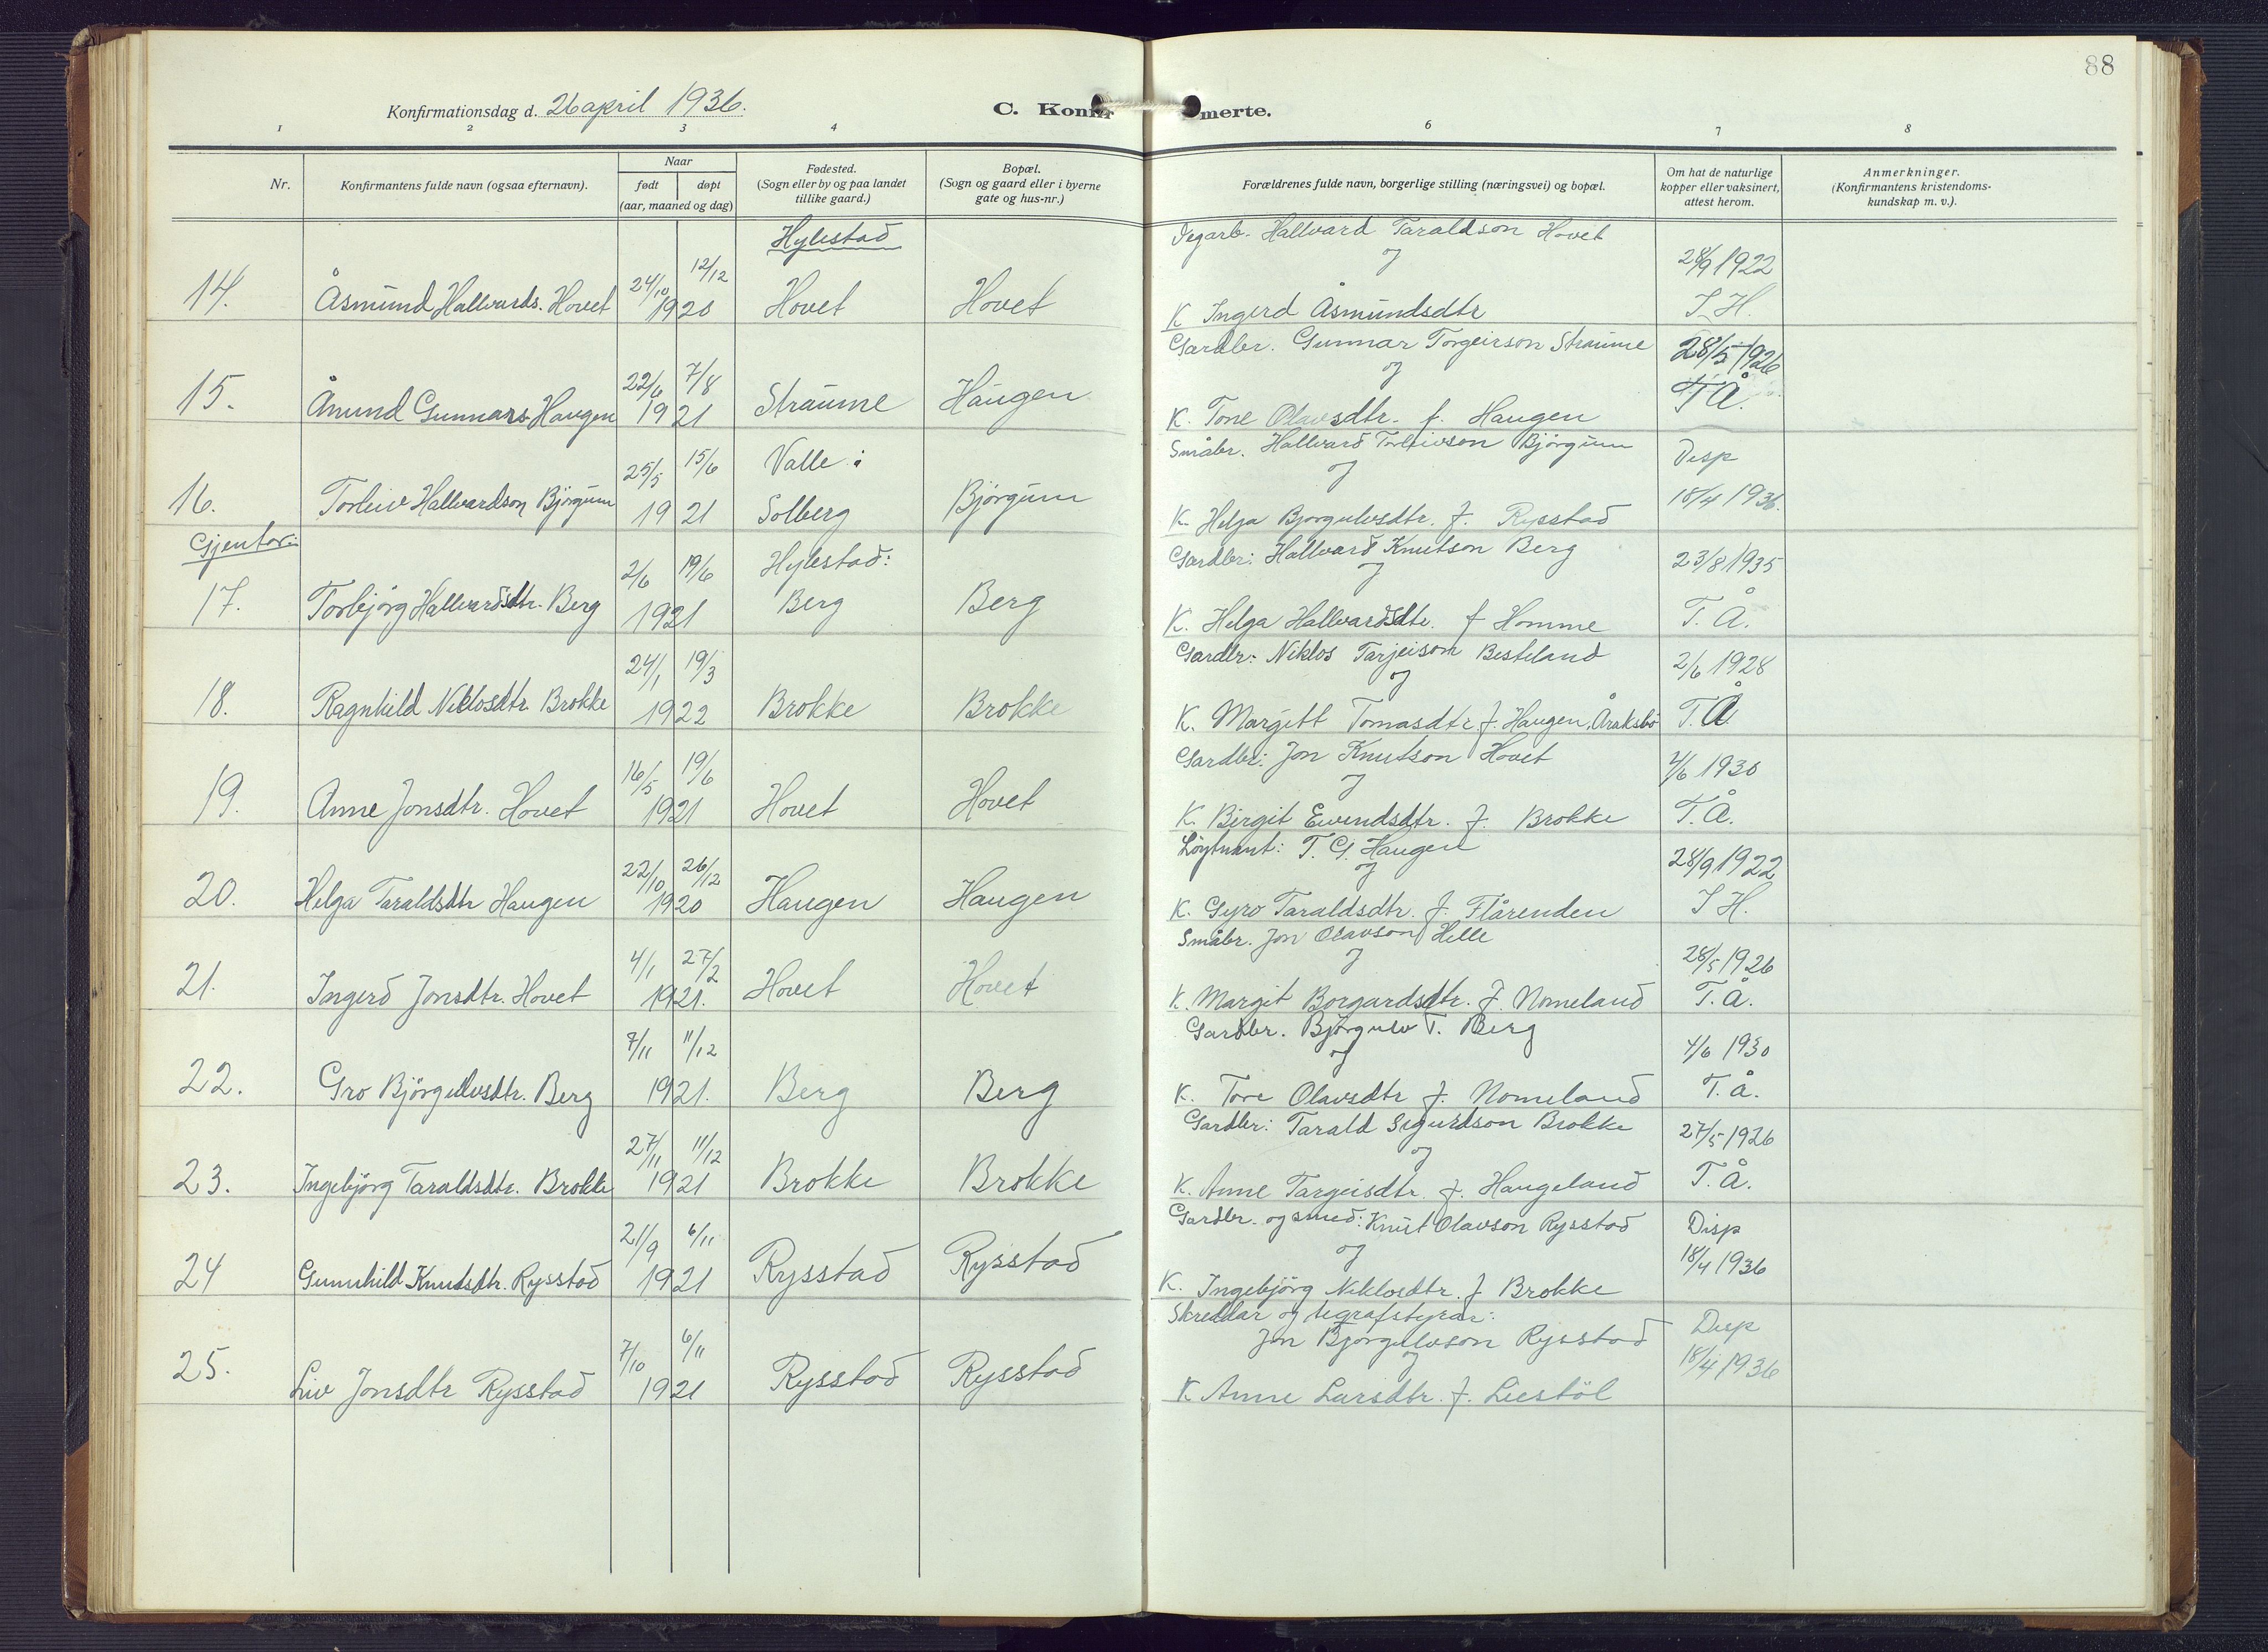 88
Konfirmationsdag d. 26 april 1936.
C. Konfir merte.
1 2 3 4 6 7 8
Nr.
Konfirmantens fulde navn (ogsaa efternavn).
Naar
født døpt
(aar, maaned og dag)
Fødested.
(Sogn eller by og paa landet
tillike gaard.)
Bopæl.
(Sogn og gaard eller i byerne
gate og hus-nr.)
Forældrenes fulde navn, borgerlige stilling (næringsvei) og bopæl.
Om hat de naturlige
kopper eller vaksinert,
attest herom.
Anmerkninger.
(Konfirmantens kristendoms-
kundskap m. v.).
Hylestad
Hallvard Taraldson Hovet
og
24/10 12/12 28/9 1922
14. Åsmund Hallvards. Hovet 1920 Hovet Hovet K Ingerd Åsmundsdtr J. H.
Gardbr. Gunnar Torgeirson Straume 28/5 1926
og
22/6 7/8
15. Ånund Gunnars. Haugen 1921 Straume Haugen K. Tone Olavsdtr. f. Haugen T Å.
Småbr. Hallvard Torleivson Bjørgum Disp
og
25/5 15/6 Valle:
16. Torleiv Hallvardson Bjørgum 1921 Solberg Bjørgum K. Helga Bjorgulvsdtr. f. Rysstad 18/4 1936.
Gjentor:
Gardbr: Hallvard Knutson Berg 23/8 1935
og
2/6 19/6 Hylestad:
17. Torbjørg Hallvardsdtr. Berg 1921 Berg Berg K. Helga Hallvardsdtr. f Homme T. Å.
Gardbr: Niklos Tarjeison Besteland 2/6 1928
og
24/1 19/3
18. Ragnhild Niklosdtr. Brokke 1922 Brokke Brokke K. Margitt Tomasdtr f. Haugen, Åraksbø T. Å
Gardbr: Jon Knutson Hovet 4/6 1930
og
16/5 19/6
19. Anne Jonsdtr. Hovet 1921 Hovet Hovet K. Birgit Eivendsdtr. f. Brokke T. Å.
Løytnant: T. G. Haugen 28/9 1922
og
22/10 26/12
20. Helga Taraldsdtr Haugen 1920 Haugen Haugen K. Gyro Taraldsdtr. f. Flårenden J H.
Småbr. Jon Olavson Helle 28/5 1926
og
4/1 27/2
21. Ingerd Jonsdtr. Hovet 1921. Hovet Hovet K. Margit Borgardsdtr. f. Nomeland T. Å.
Gardbr. Bjørgulv T. Berg 4/6 1930
og
7/11 11/12
22. Gro Bjørgulvsdtr. Berg 1921. Berg Berg K. Tore Olavsdtr f. Nomeland T. Å.
Gardbr: Tarald Sigurdson Brokke 27/5 1926
og
27/11 11/12
23. Ingebjørg Taraldsdtr. Brokke 1921 Brokke Brokke K. Anne Targeisdtr. f. Haugeland T. Å.
Gardbr. og smed: Knut Olavson Rysstad Disp
og
21/9 6/11 18/4 1936
24 Gunnhild Knutsdtr. Rysstad 1921 Rysstad Rysstad K. Ingebjørg Niklosdtr. f Brokke
Skreddar og telgrafstyrar:
Jon Bjørgulvson Rysstad Disp
og
7/10 6/11 18/4 1936
25. Liv Jonsdtr Rysstad 1921 Rysstad Rysstad K Anne Larsdtr. f. Liestøl